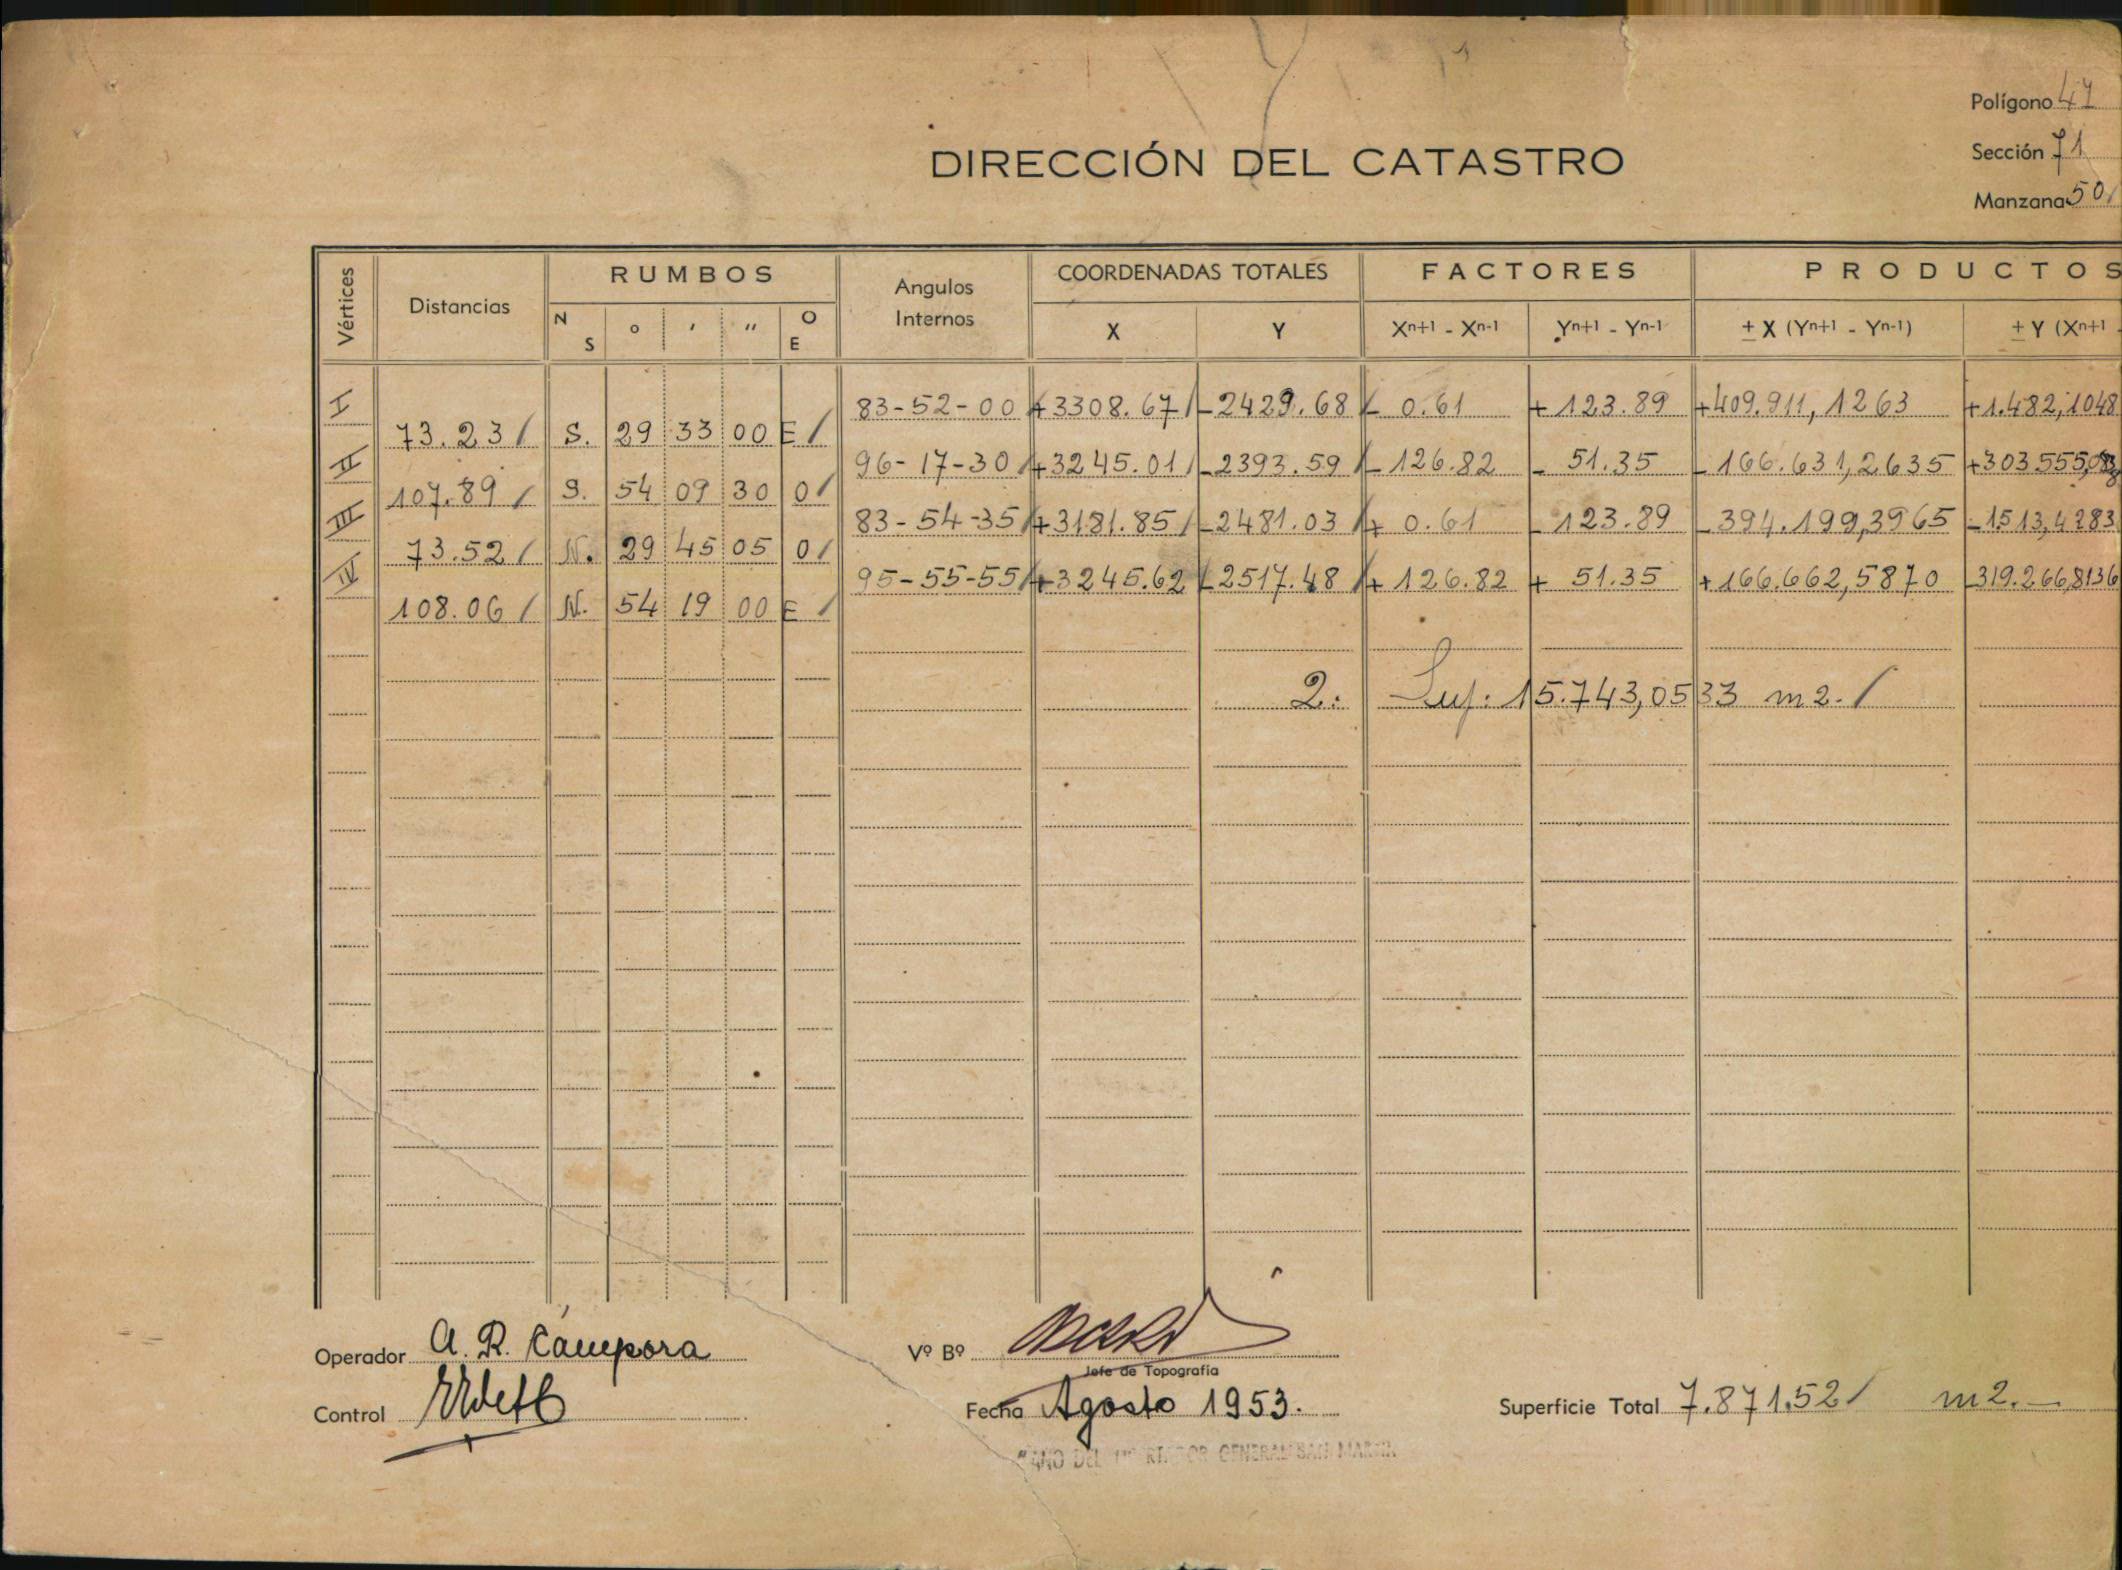 Polígono 47
DIRECCIÓN DEL CATASTRO
Sección 71
Manzana 50
Vértices Distancias RUMBOS Angulos Internos COORDENADAS TOTALES FACTORES PRODUCTOS
N S ° ′ ″ O E X Y Xn+1 - Xn-1 Yn+1 - Yn-1 ± X (Yn+1 - Yn-1) ± Y (Xn+1 -
I 83-52-00 +3308.67 -2429.68 - 0.61 + 123.89 +409.911,1263 +1.482,1048
73.23 S. 29 33 00 E
II 96-17-30 +3245.01 -2393.59 - 126.82 - 51.35 -166.631,2635 +303555,08
107.89 S. 54 09 30 O
III 83-54-35 +3181.85 -2481.03 + 0.61 - 123.89 -394.199,3965 -1513,4283
73.52 N. 29 45 05 O
IV 95-55-55 +3245.62 -2517.48 + 126.82 + 51.35 +166.662,5870 -319.266,8136
108.06 N. 54 19 00 E
2. Sup: 15.743,0533 m2.
Operador A. R. Cámpora Vº Bº
Jefe de Topografía
Control Fecha Agosto 1953. Superficie Total 7.871.52 m2.—
"AÑO DEL GENERAL SAN MARTIN